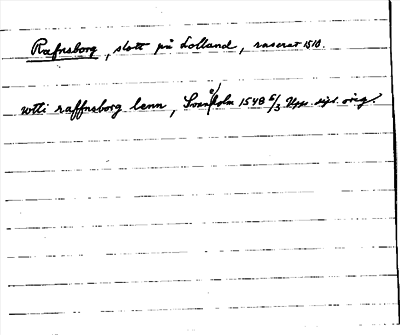 Ræfnsborg, slott på Lolland, raserat 1510.
wtti raffnsborg lenn, Svanholm 1548 5/3 Upps. sigt. orig.